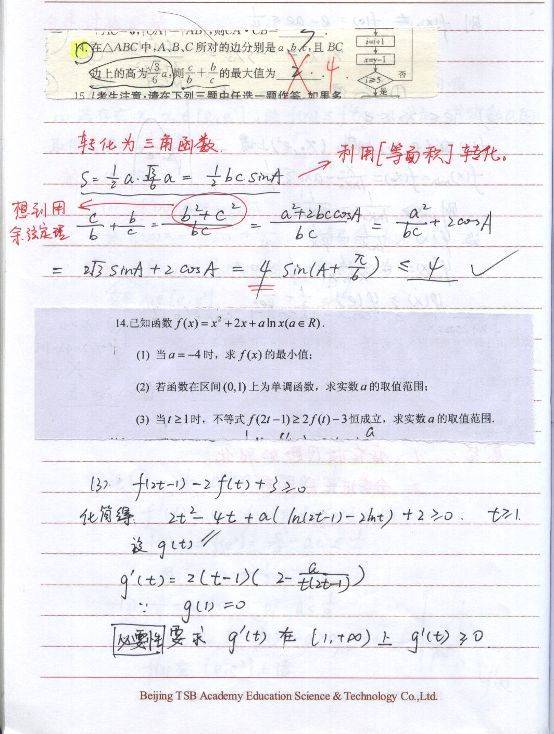 14.在△ABC中,A、B、C所对的边分别是a,b,c,且BC
i=i+1
x=y-1
边上的高为√3/6 a,则c/b+b/c的最大值为 2 . 4
i≥5
否
是
15.(考生注意:请在下列三题中任选一题作答,如果多
转化为三角函数.
S=1/2 a·√3/6 a=1/2 bcsinA
利用[等面积]转化。
想到用余弦定理
c/b+b/c=(b²+c²)/bc=(a²+2bccosA)/bc=a²/bc+2cosA
=2√3 sinA+2cosA=4 sin(A+π/6)≤4 ✓
14.已知函数f(x)=x²+2x+alnx(a∈R).
(1) 当a=-4时,求f(x)的最小值;
(2) 若函数在区间(0,1)上为单调函数,求实数a的取值范围;
(3) 当t≥1时,不等式f(2t-1)≥2f(t)-3恒成立,求实数a的取值范围.
(3) f(2t-1)-2f(t)+3≥0
化简得 2t²-4t+a(ln(2t-1)-2lnt)+2≥0. t≥1.
设g(t)
g'(t)=2(t-1)(2-a/t(2t-1))
∵ g(1)=0
必要性 要求 g'(t) 在 [1,+∞)上 g'(t)≥0
Beijing TSB Academy Education Science & Technology Co.,Ltd.